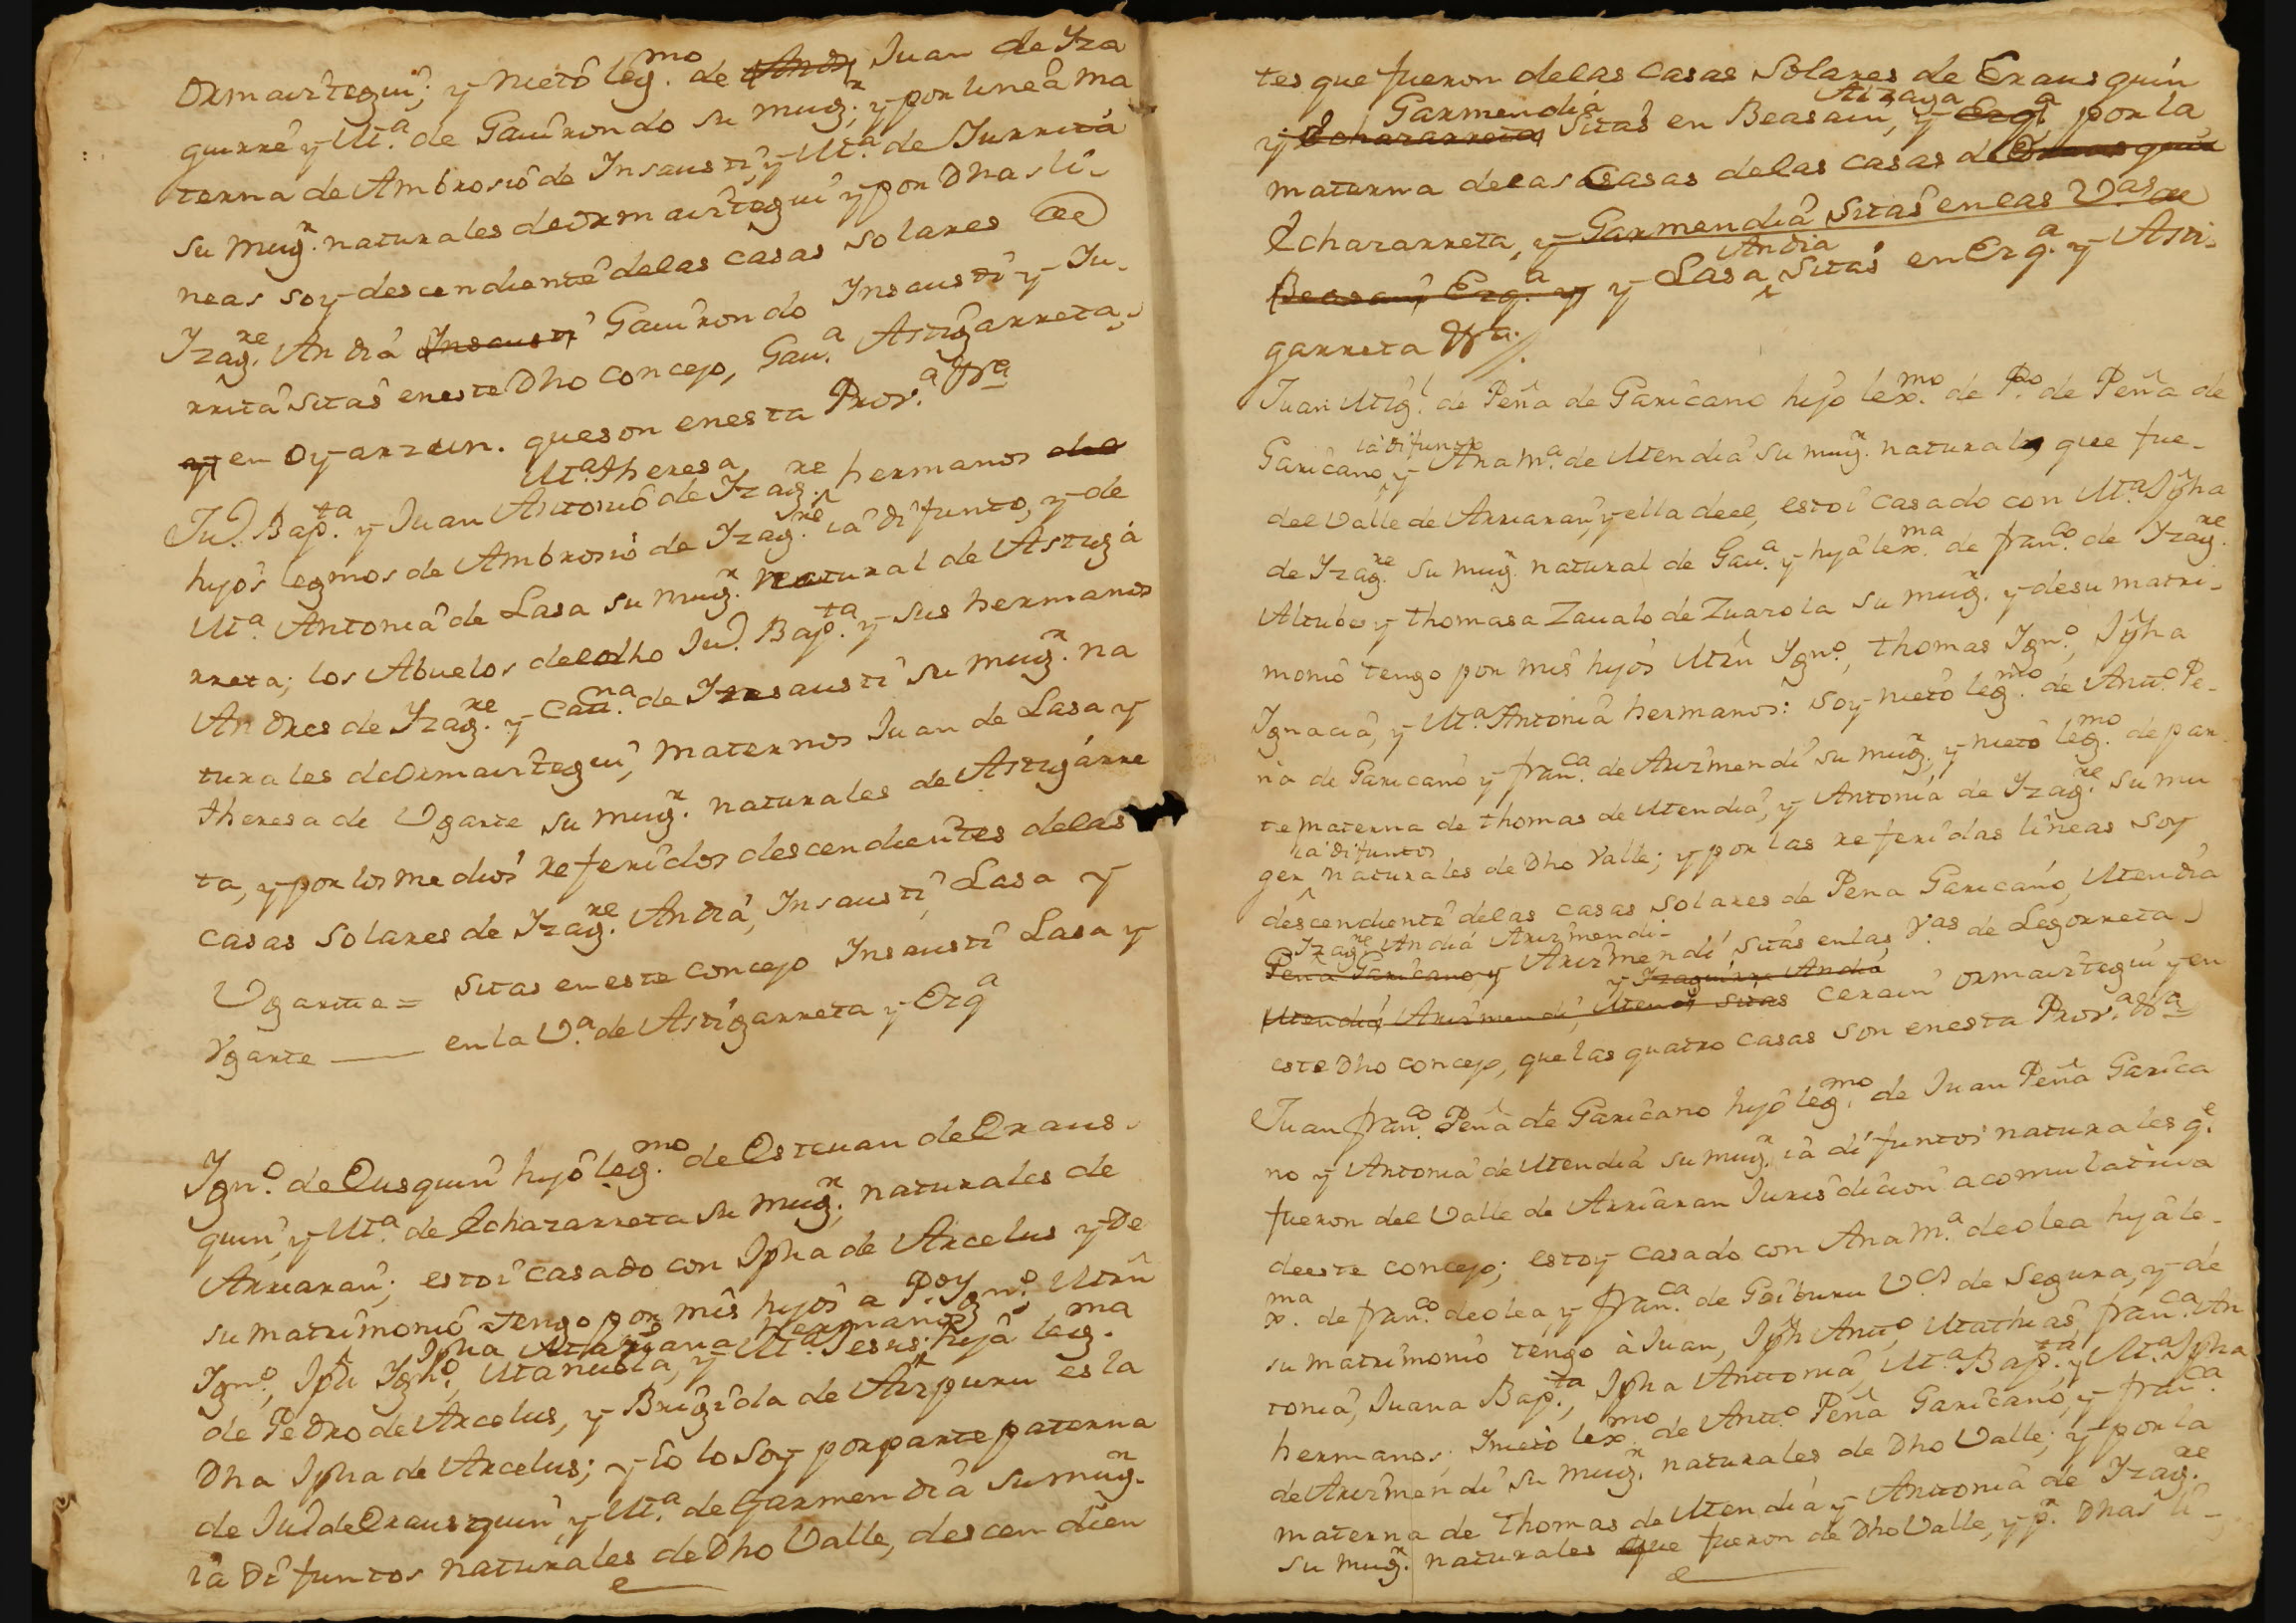 Ormaiztegui; y nieto leg.mo de Juan de Yza
guirre y M.a de Gauirondo su mug.r, y por linea ma
terna de Ambrosio de Insausti, y M.a de Iurrita
su mug.r naturales de Ormaiztegui y por Dhas li-
neas soy descendiente delas casas solares de
Yzag.re Andia Insausti Gauirondo Insausti y Iu-
rrita sitas en este Dho concejo, Gau.a Astigarreta,
y en Oyarzun. que son en esta Prov.a &.a
M.a theresa
Ju.o Bap.ta y Juan Antonio de Yzag.re hermanos
hijos legmos de Ambrosio de Yzag.re ia difunto, y de
M.a Antonia de Lasa su mug.r natural de Astiga
rreta; los Abuelos del dho Ju.o Bap.ta y sus hermanos
Andres de Yzag.re y Cat.na de Insausti su mug.r na
turales de Ormaiztegui, maternos Juan de Lasa y
theresa de Ugarte su mug.r naturales de Astigarre
ta, y por los medios referidos descendientes delas
casas solares de Yzag.re Andia, Insausti, Lasa y
Ugarte = sitas en este concejo Insausti Lasa y
Ygarte — en la V.a de Astigarreta y Ezq.a
Ygn.o de Eusquin hijo leg.mo de Estevan de Eraus-
quin, y M.a de Echazarreta su mug.r, naturales de
Arriaran; estoi casado con Ipha de Arcelus y de
su matrimonio tengo por mis hijos a P.o Ygn.o Mrn
Ipha Mariana hermanos
Ygn.o, Iph Ygn.o, Manuela, y M.a Jesus; hija leg.ma
de Pedro de Arcelus, y Brigida de Aizpuru es la
Dha Ipha de Arcelus; y Io lo soy por parte paterna
de Ju.o de Erausquin, y M.a de Garmendia su mug.r
ia difuntos naturales de Dho Valle, descendien
tes que fueron delas casas solares de Erausquin
Garmendia Aizaga
y Echazarreta sitas en Beasain, y Ezq.a por la
materna delas casas delas casas de Erausquin
Echazarreta, y Garmendia sitas en las V.as de
Andia
Beasain Ezq.a y y Lasa sitas en Ezq.a y Asti-
garreta &.a
Juan Mig.l de Peña de Garicano hijo lex.mo de P.o de Peña de
ia difunta
Garicano, y Ana M.a de Mendia su mug.r naturales que fue-
del Valle de Arriaran, y ella de el, estoi casado con M.a Ipha
de Yzag.re su mug.r natural de Gau.a y hija lex.ma de fran.co de Yzag.re
Altube y thomasa Zavalo de Zuarola su mug.r y de su matri-
monio tengo por mis hijos Mrn Ygn.o, thomas Ygn.o, Ipha
Ignacia, y M.a Antonia hermanos: soy nieto leg.mo de Ant.o Pe-
ña de Garicano y fran.ca de Arizmendi su mug.r, y nieto leg.mo de par
te materna de thomas de Mendia, y Antonia de Yzag.re su mu
ia difuntos
ger naturales de Dho Valle; y por las referidas lineas soy
descendiente delas casas solares de Peña Garicano, Mendia
Yzag.re Andia Arizmendi-
Peña Garicano y Arizmendi sitas en las V.as de Legorreta
y Izaguirre Andia
Mendia Arizmendi, sitas Cerain Ormaiztegui y en
este Dho concejo, que las quatro casas son en esta Prov.a &.a
Juan fran.co Peña de Garicano hijo leg.mo de Juan Peña Garica
no y Antonia de Mendia su mug.r ia difuntos naturales q.e
fueron del Valle de Arriaran Iurisdicion acomulativa
de este concejo; estoy casado con Ana M.a de Olea hija le-
x.ma de fran.co de Olea y fran.ca de Goiburu V.os de Segura, y de
su matrimonio tengo à Juan, Iph Ant.o Mathias, fran.ca An
tonia, Juana Bap.ta, Ipha Antonia, M.a Bap.ta y M.a Ipha
hermanos; Inieto lex.mo de Ant.o Peña Garicano, y fran.ca
de Arizmendi su mug.r naturales de Dho Valle; y por la
materna de thomas de Mendia y Antonia de Yzag.re
su mug.r naturales que fueron de Dho Valle, y p.r Dhas li-